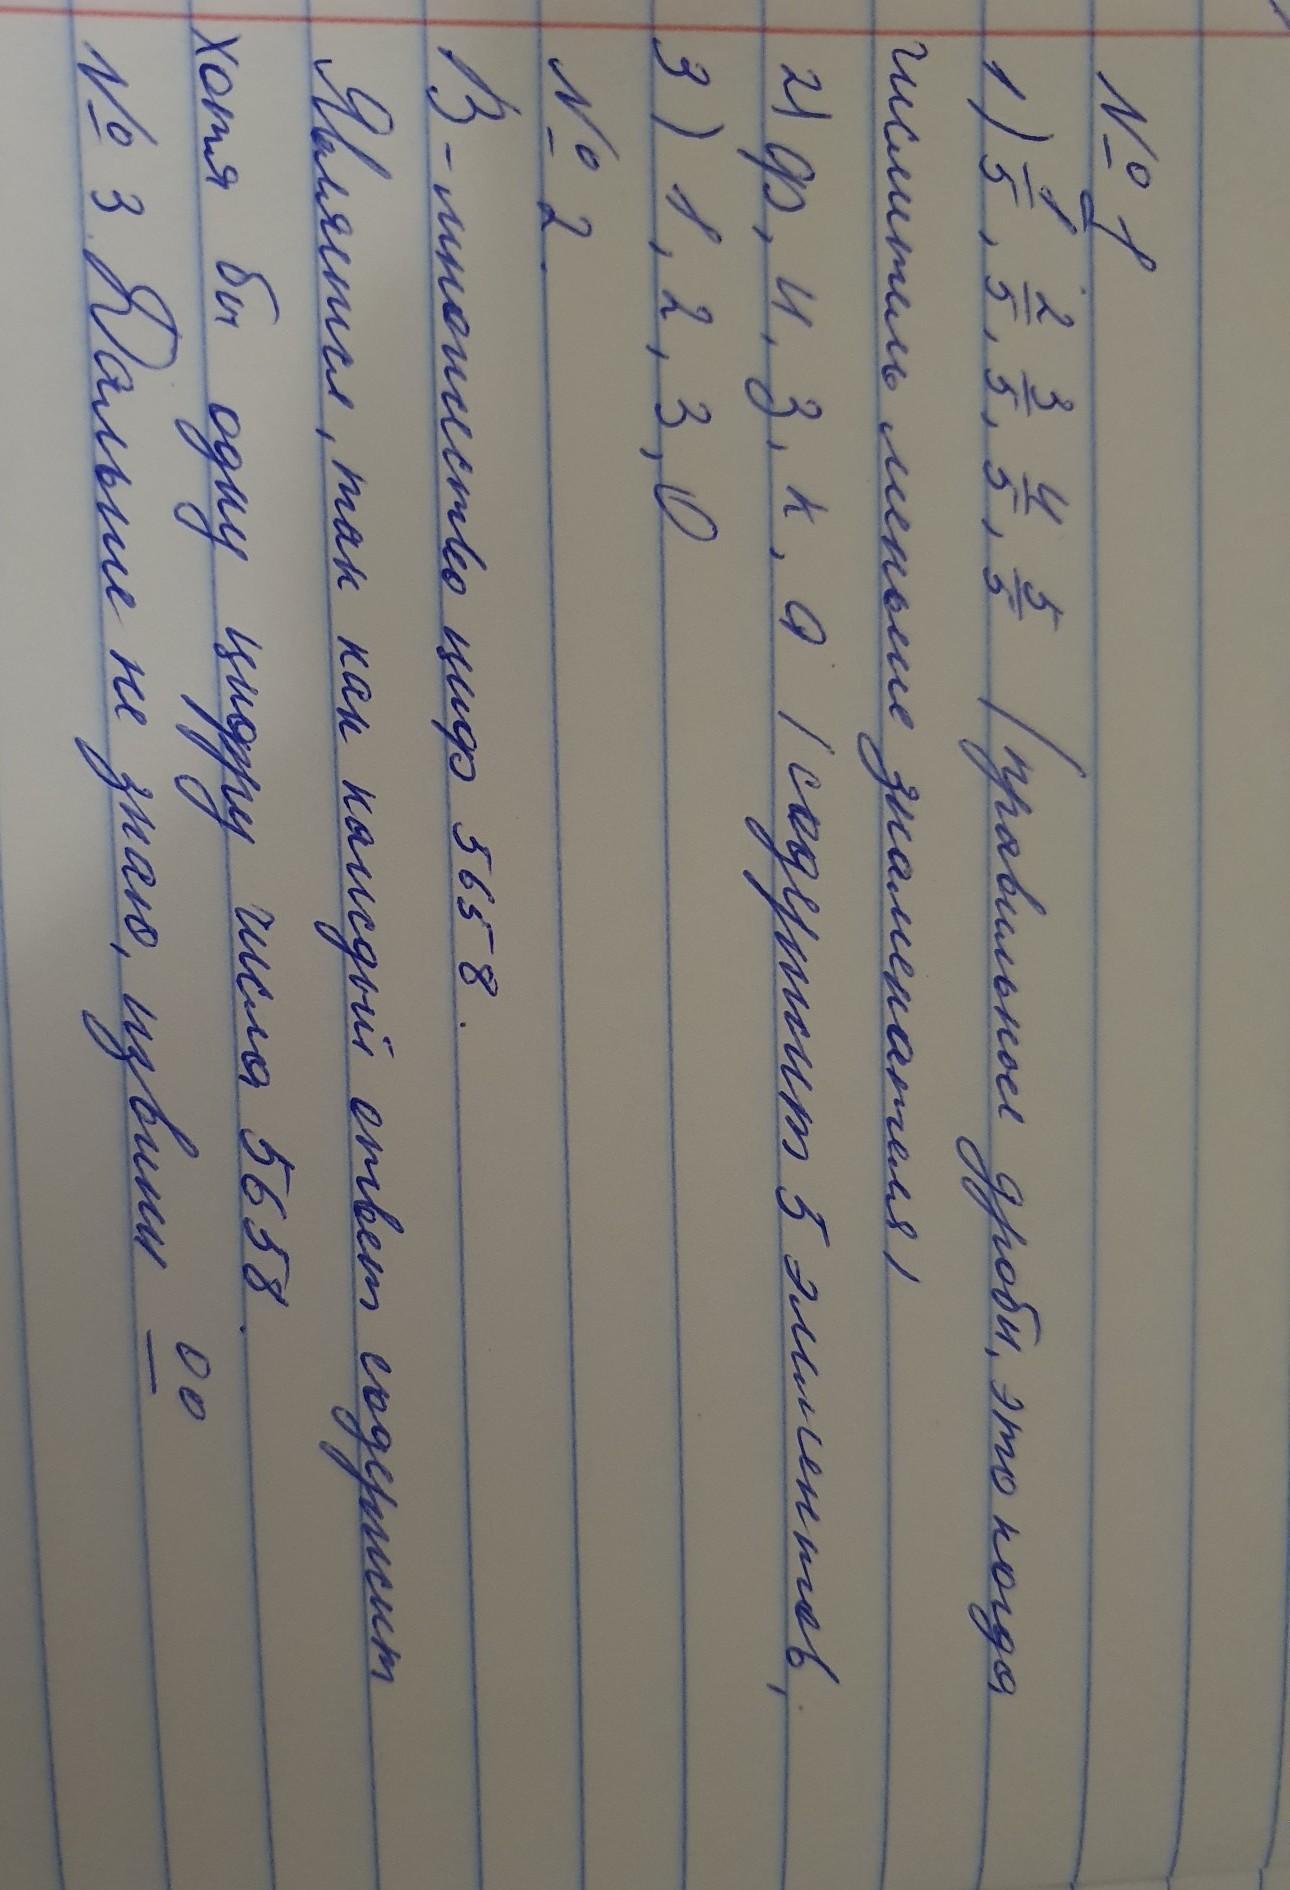 № 1
1) 1/5, 2/5, 3/5, 4/5, 5/5 (правильные дроби, это когда
числитель меньше знаменателя)
2) ф, и, з, к, а (содержит 5 элементов,
3) 1, 2, 3, 0
№ 2.
В - множество цифр 5658.
Является, так как каждый ответ содержит
хотя бы одну цифру числа 5658.
№ 3. Дальше не знаю, извини